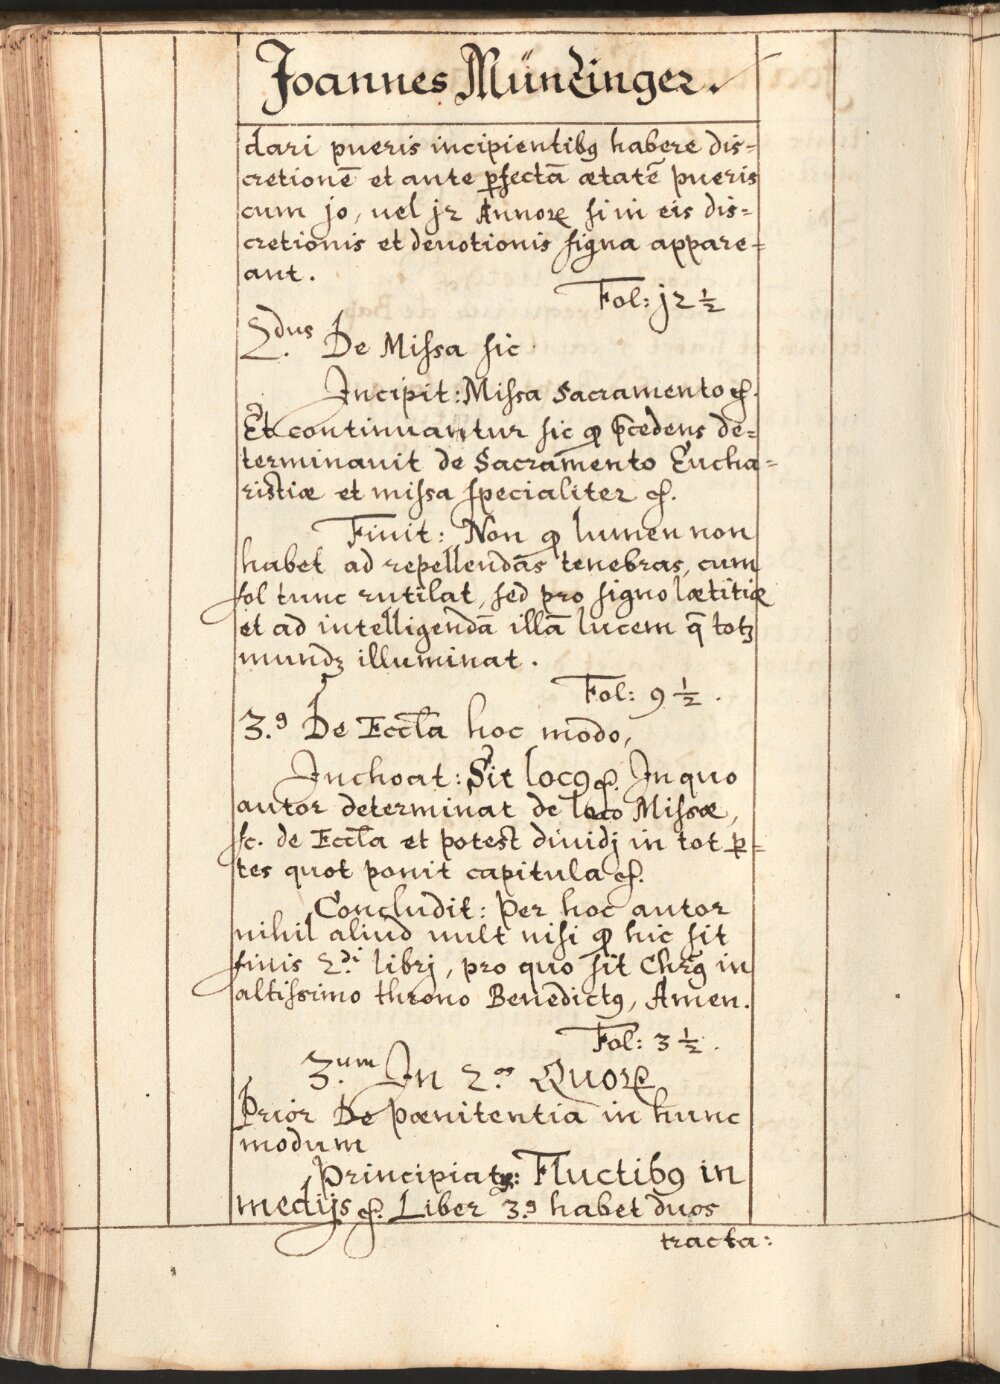 Joannes Münzinger.
dari pueris incipientibꝯ habere dis=
cretionē et ante ꝑfectā ætatē pueris
cum jo, uel j2 Annoꝝ si in eis dis=
cretionis et deuotionis signa appare=
ant.
Fol: j2 ½
2.dus De Missa sic
Incipit: Missa Sacramento ꝛc.
Et continuantur sic ꝙ p̄cedens de=
terminauit de Sacramento Eucha=
ristiæ et missa specialiter ꝛc.
Finit: Non ꝙ lumen non
habet ad repellendas tenebras, cum
sol tunc rutilat, sed pro signo lætitiæ
et ad intelligendā illā lucem q̄ totꝫ
mundꝫ illuminat.
Fol: 9 ½.
3.ꝯ De Eccl̄a hoc modo,
Inchoat: Sit locꝯ ꝛc. In quo
autor determinat de loco Missæ,
sc. de Eccl̄a et potest diuidj in tot ꝑ=
tes quot ponit capitula ꝛc.
Concludit: Per hoc autor
nihil aliud uult nisi ꝙ hic sit
finis 2.di librj, pro quo sit Chr̄ꝯ in
altissimo throno Benedictꝯ, Amen.
Fol: 3 ½.
3.um In 2.o Quoꝝ
Prior De pænitentia in hunc
modum
Principiatr: Fluctibꝯ in
medijs ꝛc. Liber 3.ꝯ habet duos
tracta: